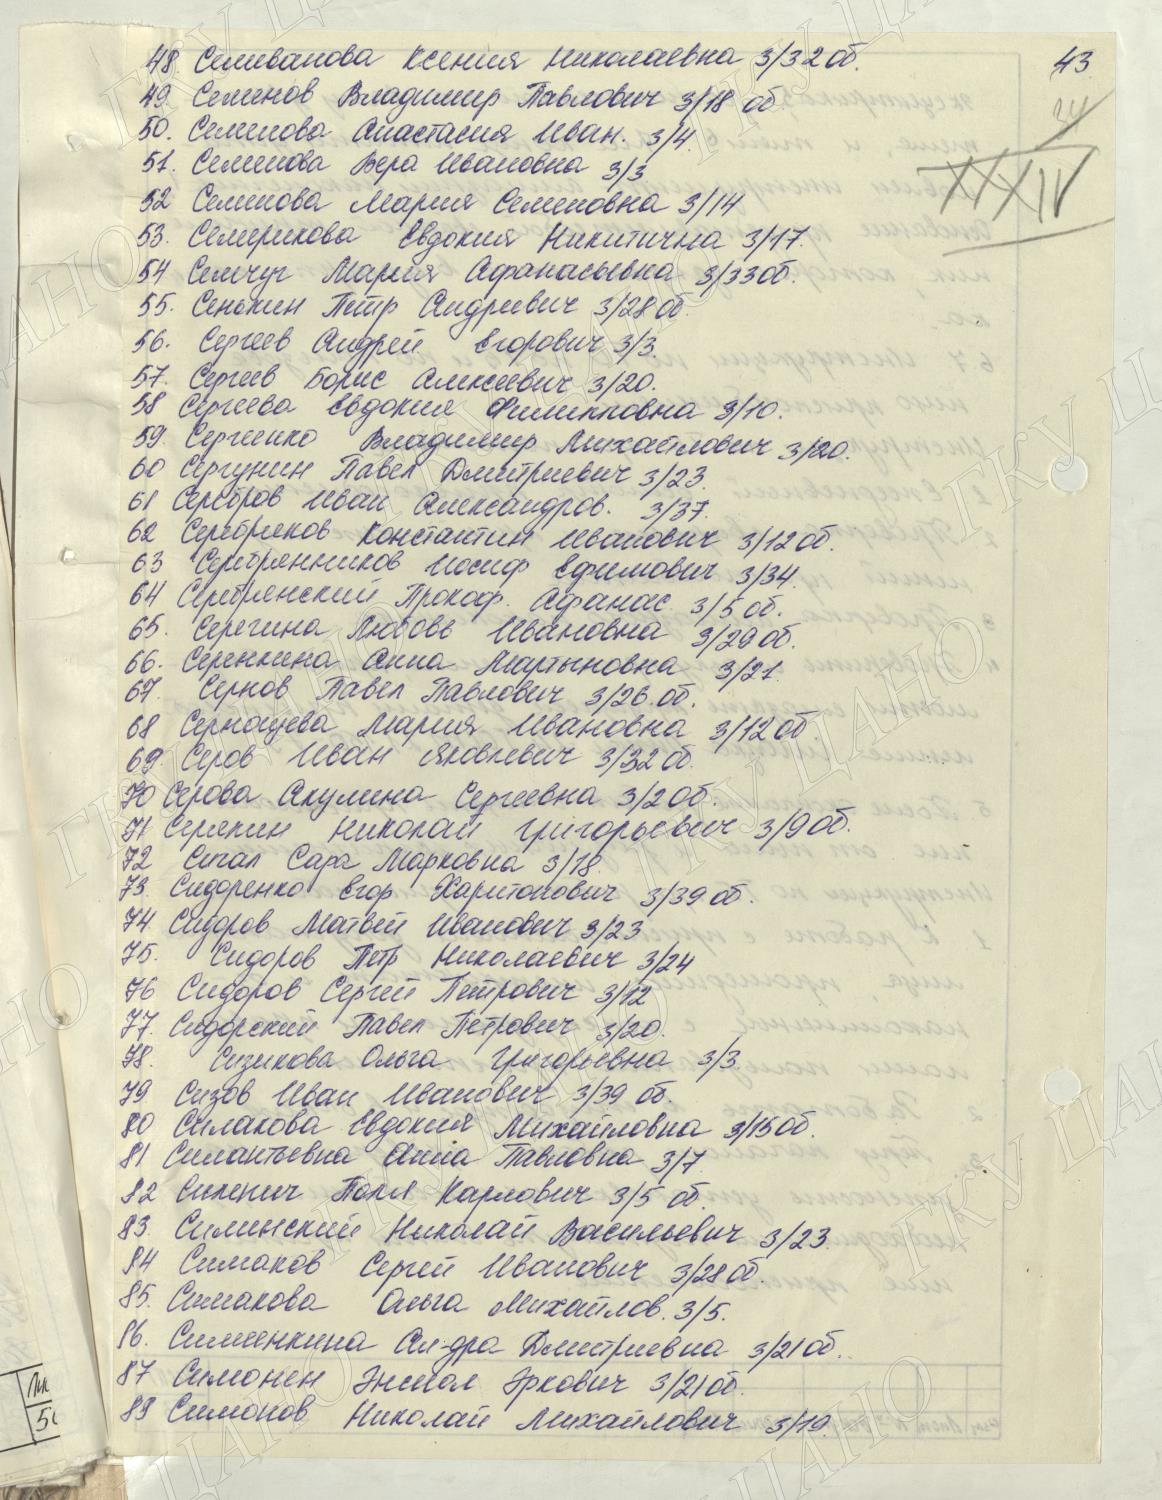 43
XXXIV
48. Селиванова Ксения Николаевна 3/32 об.
49. Семенов Владимир Павлович 3/18 об.
50. Семенова Анастасия Иван. 3/4.
51. Семенова Вера Ивановна 3/3
52 Семенова Мария Семеновна 3/14
53. Семерикова Евдокия Никитична 3/17.
54 Семчуг Мария Афанасьевна 3/33 об.
55. Сенькин Петр Андреевич 3/28 об.
56. Сергеев Андрей Егорович 3/3.
57. Сергеев Борис Алексеевич 3/20.
58 Сергеева Евдокия Филипповна 3/10.
59. Сергиенко Владимир Михайлович 3/20.
60 Сергунин Павел Дмитриевич 3/23.
61 Серебров Иван Александров. 3/37.
62 Серебряков Константин Иванович 3/12 об.
63 Серебрянников Иосиф Ефимович 3/34.
64 Серебрянский Прокоф. Афанас. 3/5 об.
65. Серегина Любовь Ивановна 3/29 об.
66. Серенкина Анна Мартыновна 3/21.
67. Сернов Павел Павлович 3/26 об.
68 Мария Ивановна 3/12 об.
69. Серов Иван Яковлевич 3/32 об.
70 Серова Акулина Сергеевна 3/2 об.
71 Серякин Николай Григорьевич 3/9 об.
72 Сигал Сара Марковна 3/18.
73. Сидоренко Егор Харитонович 3/39 об.
74. Сидоров Матвей Иванович 3/23
75. Сидоров Петр Николаевич 3/24
76 Сидоров Сергей Петрович 3/12
77. Сидорский Павел Петрович 3/20.
78. Сизикова Ольга Григорьевна 3/3.
79. Сизов Иван Иванович 3/39 об.
80 Силакова Евдокия Михайловна 3/15 об.
81 Силантьевна Анна Павловна 3/7.
82 Силенич Поля Карлович 3/5 об.
83. Силинский Николай Васильевич 3/23.
84 Симаков Сергей Иванович 3/28 об.
85. Симакова Ольга Михайлов. 3/5.
86. Сименкина Ал-дра Дмитриевна 3/21 об.
87 Симонен Эркович 3/21 об.
88 Симонов Николай Михайлович 3/19.
ГКУ ЦАНО